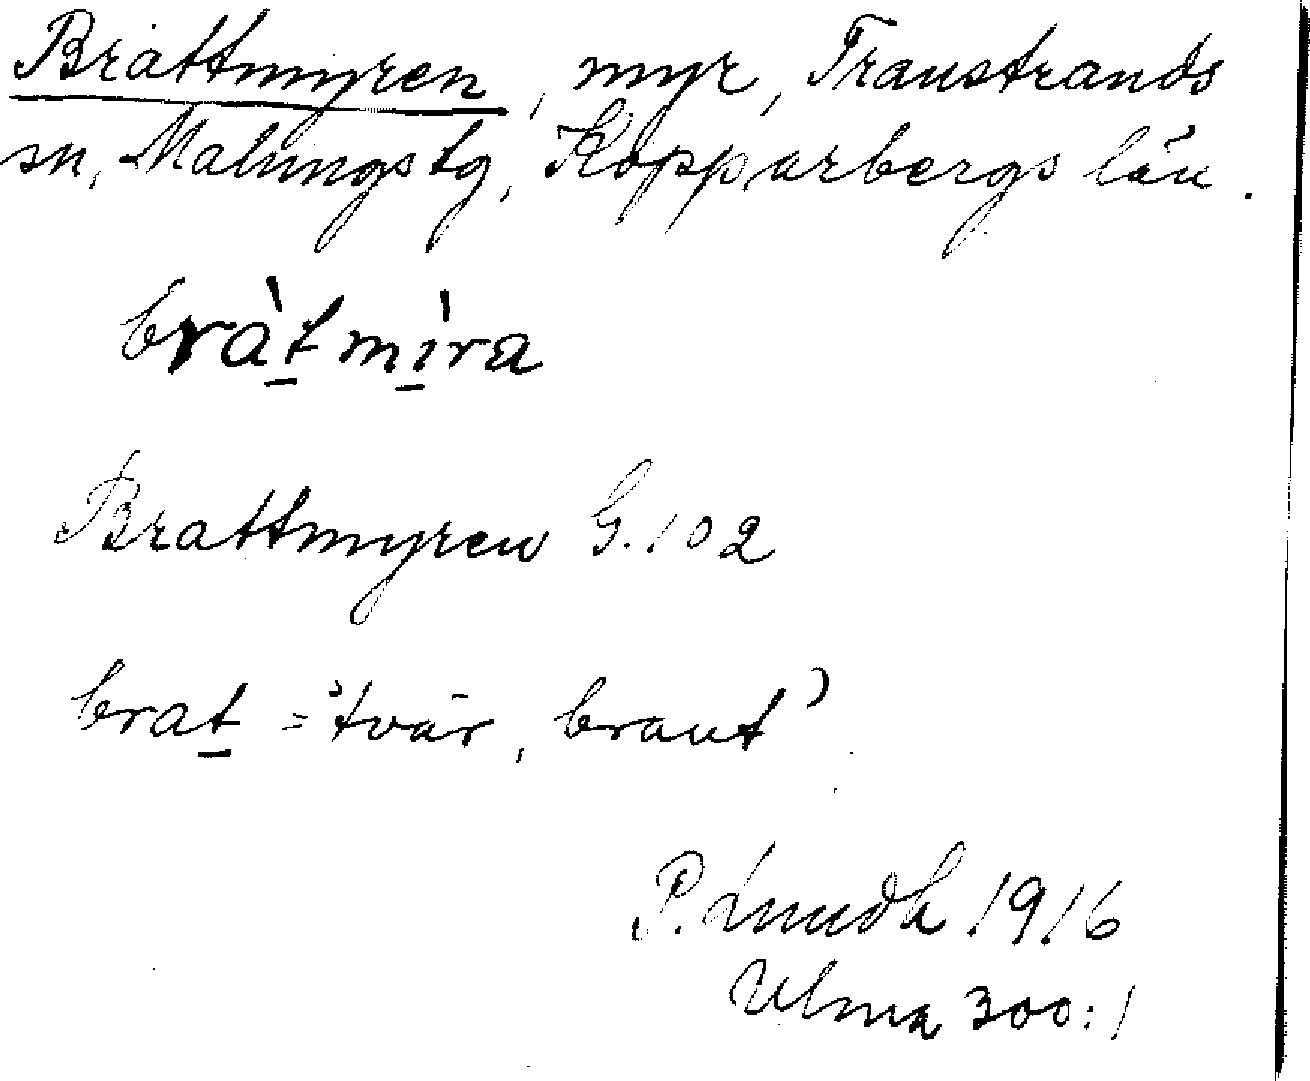 Brattmyren, myr, Transtrands
sn, Malungs tg, Kopparbergs län.
bràt̲mì̲ra
Brattmyren G. 102
brat̲ = 'tvär, brant'
P. Lundh 1916
Ulma 300:1